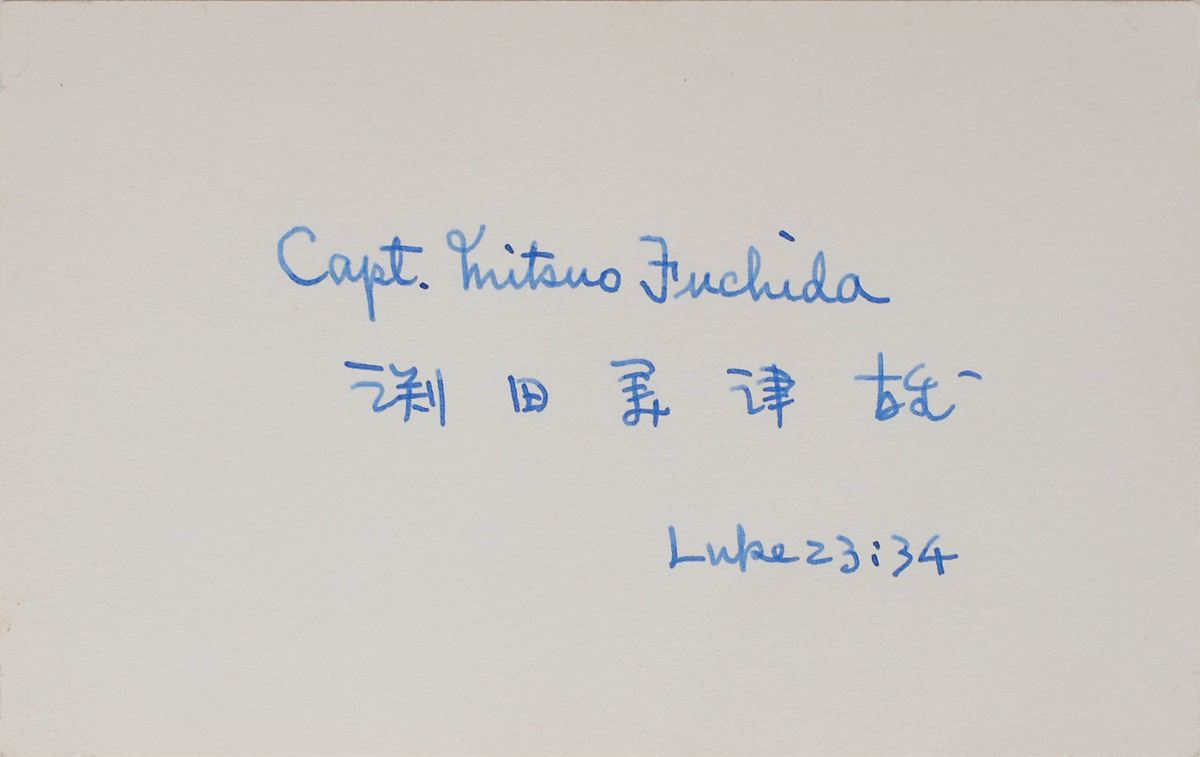 Capt. Mitsuo Fuchida
渕田美津雄
Luke 23:34